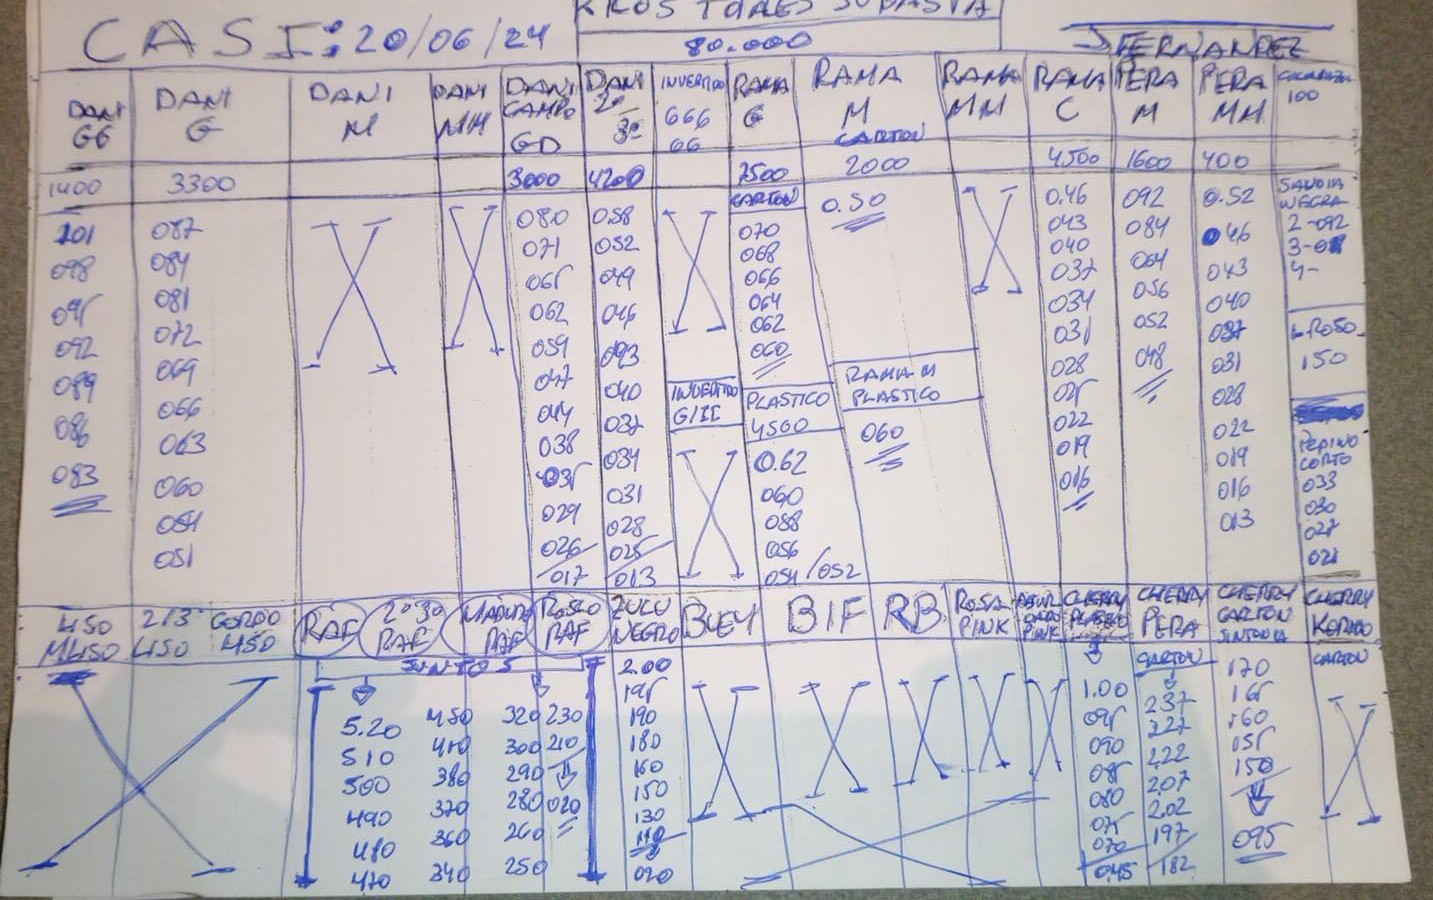 KROS TOTALES SUBASTA
CASI: 20/06/24
80.000
J FERNANDEZ
DANI GG
DANI G
DANI M
DANI MM
DANI CAMPO GD
DANI 2º 3º
INVERTIDO 666 66
RAMA G
RAMA M CARTON
RAMA MM
RAMA C
PERA M
PERA MM
100
1400
3300
3000
4200
7500
2000
4500
1600
400
101
098
095
092
089
086
083
087
084
081
072
069
066
063
060
054
051
080
071
065
062
059
047
044
038
035
029
026
017
058
052
049
046
043
040
037
034
031
028
025
013
INVERTIDO G/II
CARTON
070
068
066
064
062
060
PLASTICO
4500
0.62
060
058
056
054/052
0.50
RAMA M PLASTICO
060
0.46
043
040
037
034
031
028
025
022
019
016
092
084
064
056
052
048
0.52
046
043
040
037
031
028
022
019
016
013
SANDIA NEGRA
2-092
3-
4-
150
PEPINO CORTO
033
030
027
021
LISO M LISO
2/3 LISO
GORDO LISO
RAF
2º 3º RAF
MADURO RAF
ROSCO RAF
ZULU NEGRO
BUEY
BIF
RB
ROSA PINK
ASURCADO PINK
CHERRY PLASTICO
CHERRY PERA
CHERRY CARTON SINTONIA
CHERRY KORDO
JUNTOS
5.20
510
500
490
480
470
450
410
380
370
360
340
320
300
290
280
260
250
230
210
020
2.00
195
190
180
160
150
130
110
090
1.00
095
090
085
080
075
070
045
CARTON
237
227
222
207
202
197
182
170
165
160
155
150
095
CARTON